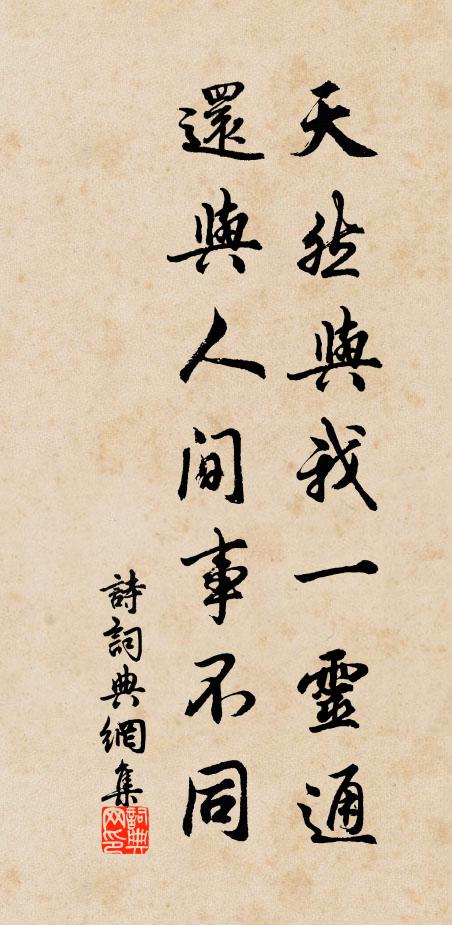 天然與我一靈通
還與人間事不同
詩詞典網集
詞典
网印